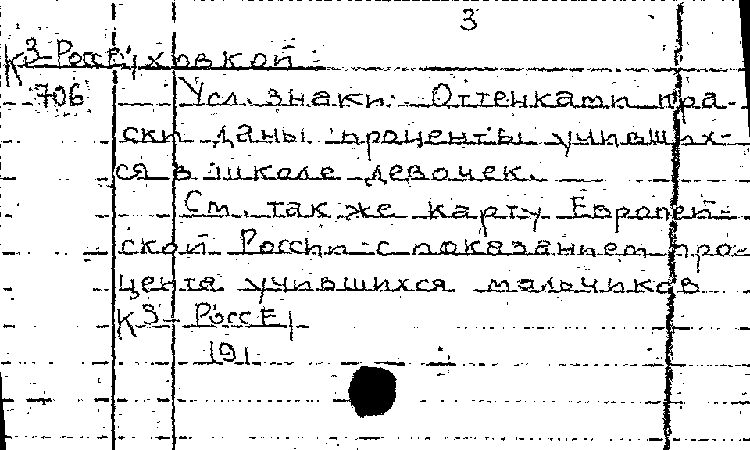 3
К3-РоссЕ/ховкой.
706 Усл. знаки: Оттенками кра-
ски даны проценты учивших-
ся в школе девочек.
См. также карту Европей-
ской России с показанием про-
цента учившихся мальчиков
К3-РоссЕ/
191